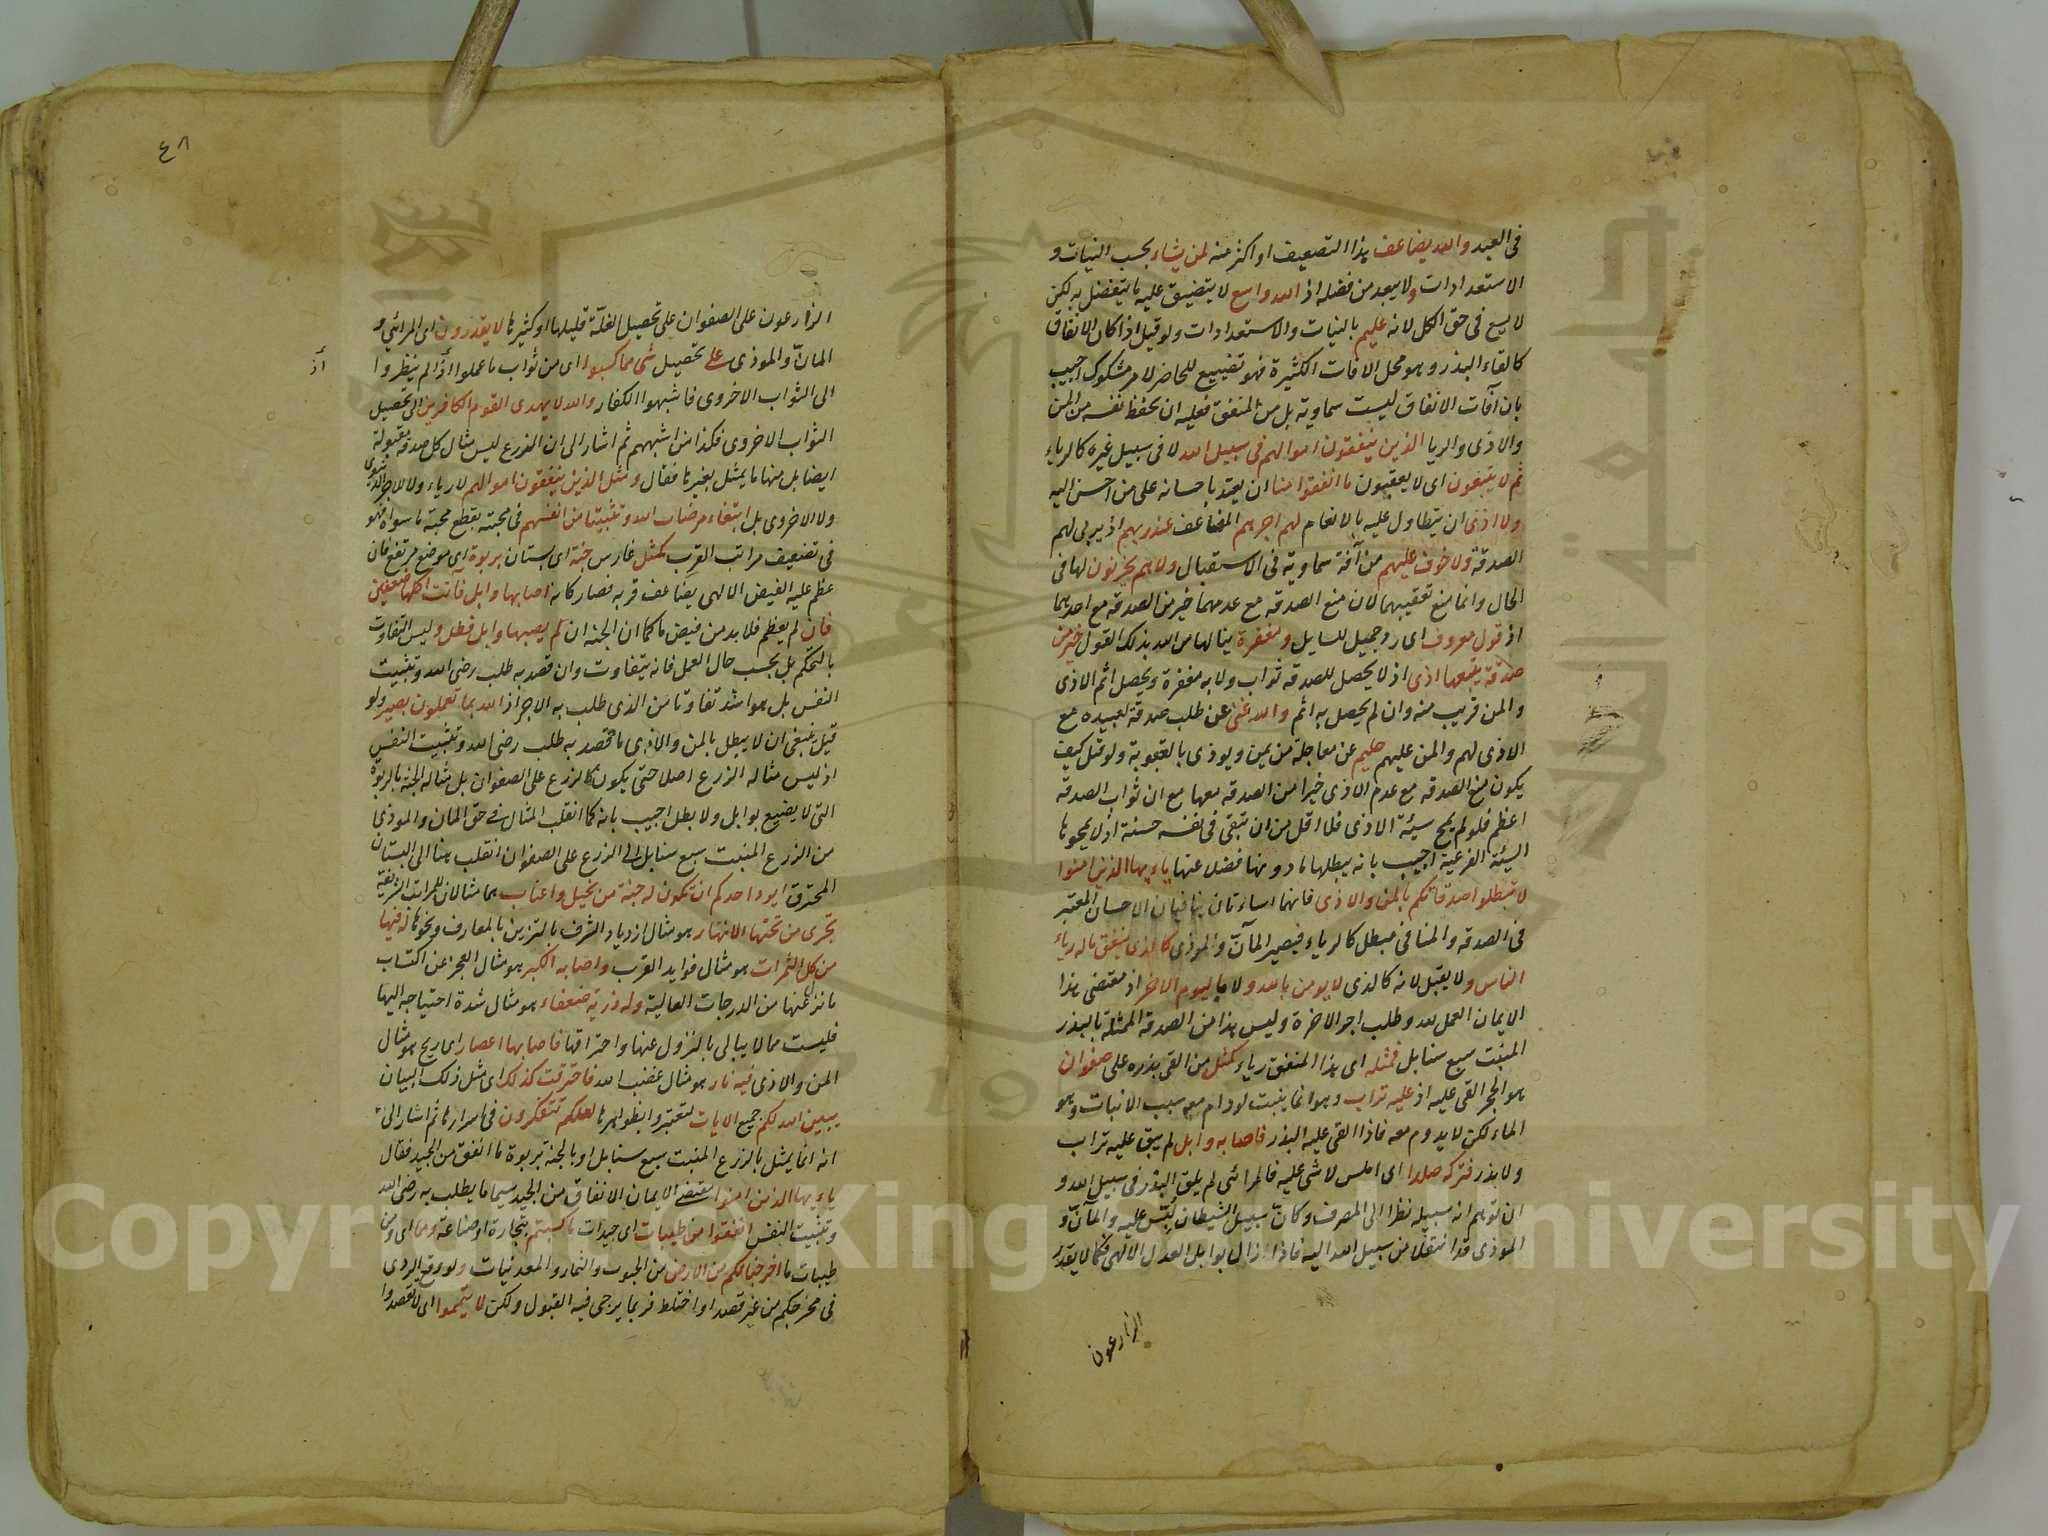 فى العبد والله يضاعف هذا التضعيف او اكثر منه لمن يشاء بحسب النيات و
الاستعدادات ولا يبعد من فضله اذ الله واسع لا يتضيق عليه ما يتفضل به لكن
لا يسع فى حق الكل لانه عليم بالنيات والاستعدادات ولو قيل اذا كان الانفاق
كالقاء البذر وهو محل الافات الكثيرة فهو تضييع للحاضر لامر مشكوك اجيب
بان آفات الانفاق ليست سماوية بل من المنفق فعليه ان يحفظ نفسه من المن
والاذى والريا الذين ينفقون اموالهم فى سبيل الله لا فى سبيل غيره كالرياء
ثم لا يتبعون اى لا يعقبون ما انفقوا منا ان يعتد باحسانه على من احسن اليه
ولا اذى ان يتطاول عليه بالانعام لهم اجرهم المضاعف عند ربهم اذ يربى لهم
الصدقة ولا خوف عليهم من آفة سماوية فى الاستقبال ولا هم يحزنون لها فى
الحال وانما منع تعقيبهما لان منع الصدقة مع عدمهما خير من الصدقة مع احدهما
اذ قول معروف اى رد جميل للسايل ومغفرة ينالها من الله بذلك القول خير من
صدقة يتبعها اذى اذ لا يحصل للصدقه ثواب ولا به مغفرة ويحصل اثم الاذى
والمن قريب منه وان لم يحصل به اثم والله غنى عن طلب صدقة لعبيده مع
الاذى لهم والمن عليهم حليم عن معاجلة من يمن ويوذى بالعقوبة ولو قيل كيف
يكون منع الصدقه مع عدم الاذى خيرا من الصدقه معها مع ان ثواب الصدقة
اعظم فلو لم يمح سيئة الاذى فلا اقل من ان تبقى فى نفسه حسنة اذ لا يمحوها
السيئة الفرعية اجيب بانه يبطلها ما دونها فضلا عنها يا ايها الذين امنوا
لا تبطلوا صدقاتكم بالمن والاذى فانهما اساءتان ينافيان الاحسان المعتبر
فى الصدقه والمنافى مبطل كالرياء فيصير المآنّ والموذى كالذى ينفق ماله رياء
الناس ولا يقبل لانه كالذى لا يومن بالله ولا باليوم الاخر اذ مقتضى هذا
الايمان العمل لله وطلب اجر الاخرة وليس هذا من الصدقه الممثلة بالبذر
المنبت سبع سنابل فمثله اى هذا المنفق رياء كمثل من القى بذره على صفوان
هو الحجر القى عليه اذ عليه تراب وهو انما ينبت لو دام معه سبب الانبات وهو
الماء لكن لا يدوم معه فاذا القى عليه البذر فاصابه وابل لم يبق عليه تراب
ولا بذر فتركه صلدا اى املس لا شى عليه فالمرائى لم يلق البذر فى سبيل الله و
ان توهم انه سبيله نظرا الى المصرف وكان سبيل الشيطان لبّس عليه والمآنّ و
الموذى قد انتقلا من سبيل الله اليه فاذا زال بوابل العدل الالهى فكما لا يقدر
الزارعون
٤٨
الزارعون على الصفوان على تحصيل الغلّة قليلها او كثيرها لا يقدرون اى المرائي و
المانّ والموذى على تحصيل شى مما كسبوا اى من ثواب ما عملوا اذ لم ينظروا
أذ
الى الثواب الاخروى فاشبهوا الكفار والله لا يهدى القوم الكافرين الى تحصيل
الثواب الاخروى فكذا من اشبههم ثم اشار الى ان الزرع ليس مثال كل صدقة مقبولة
ايضا بل منها ما يمثل بغيرها فقال ومثل الذين ينفقون اموالهم لا رياء ولا للاجر الدنيوى
ولا الاخروى بل ابتغاء مرضات الله وتثبيتا من انفسهم فى محبته بقطع محبة ما سواه فهو
فى تضعيف مراتب القرب كمثل غارس جنة اى بستان بربوة اى موضع مرتفع فان
عظم عليه الفيض الالهى يضاعف قربه فصار كانه اصابها وابل فآتت اكلها ضعفين
فان لم يعظم فلا بد من فيض ما كما ان الجنة ان لم يصبها وابل فطل وليس التفاوت
بالتحكم بل بحسب حال العمل فانه يتفاوت وان قصد به طلب رضى الله وتثبيت
النفس بل هو اشد تفاوتا من الذى طلب به الاجر اذ الله بما تعملون بصير ولو
قيل ينبغى ان لا يبطل بالمن والاذى ما قصد به طلب رضى الله وتثبيت النفس
اذ ليس مثاله الزرع اصلا حتى يكون كالزرع على الصفوان بل مثاله الجنة بالربوة
التى لا يضيع بوابل ولا بطل اجيب بانه كما انقلب المثال فى حق المان والموذى
من الزرع المنبت سبع سنابل الى الزرع على الصفوان انقلب هنا الى البستان
المحترق ايود احدكم ان تكون له جنة من نخيل واعناب هما مثالان للمراتب الشريفة
تجرى من تحتها الانهار هو مثال ازدياد الشرف بالتزين بالمعارف ونحوها له فيها
من كل الثمرات هو مثال فوايد القرب واصابه الكبر هو مثال العجز عن اكتساب
ما نزل عنها من الدرجات العالية وله ذرية ضعفاء هو مثال شدة احتياجه اليها
فليست مما لا يبالى بالنزول عنها واحتراقها فاصابها اعصار اى ريح هو مثال
المن والاذى فيه نار هو مثال غضب الله فاحترقت كذلك اى مثل ذلك البيان
يبين الله لكم جميع الايات لتعتبروا بظواهرها لعلكم تتفكرون فى اسرارها ثم اشار الى
انه انما يمثل بالزرع المنبت سبع سنابل او بالجنة بربوة ما انفق من الجيد فقال
يا ايها الذين امنوا مقتضى الايمان الانفاق من الجيد سيما ما يطلب به رضى الله
وتثبيت النفس انفقوا من طيبات اى جيدات ما كسبتم بتجارة او صناعة ومما اى ومن
طيبات ما اخرجنا لكم من الارض من الحبوب والثمار والمعدنيات ولو وقع الردى
فى مخرجكم من غير قصد او اختلط فربما يرجى فيه القبول ولكن لا تيمموا اى لا تقصدوا
Copyright © King Saud University